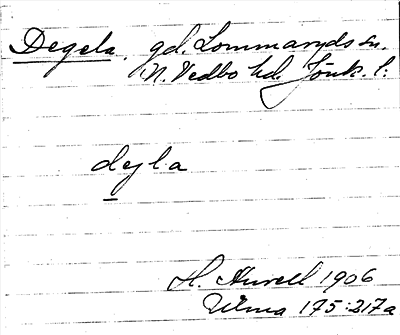 Degela, gd. Lommaryds sn.
N. Vedbo hd. Jönk. l:
deɟla
H. Aurell 1906
Ulma 175:217a